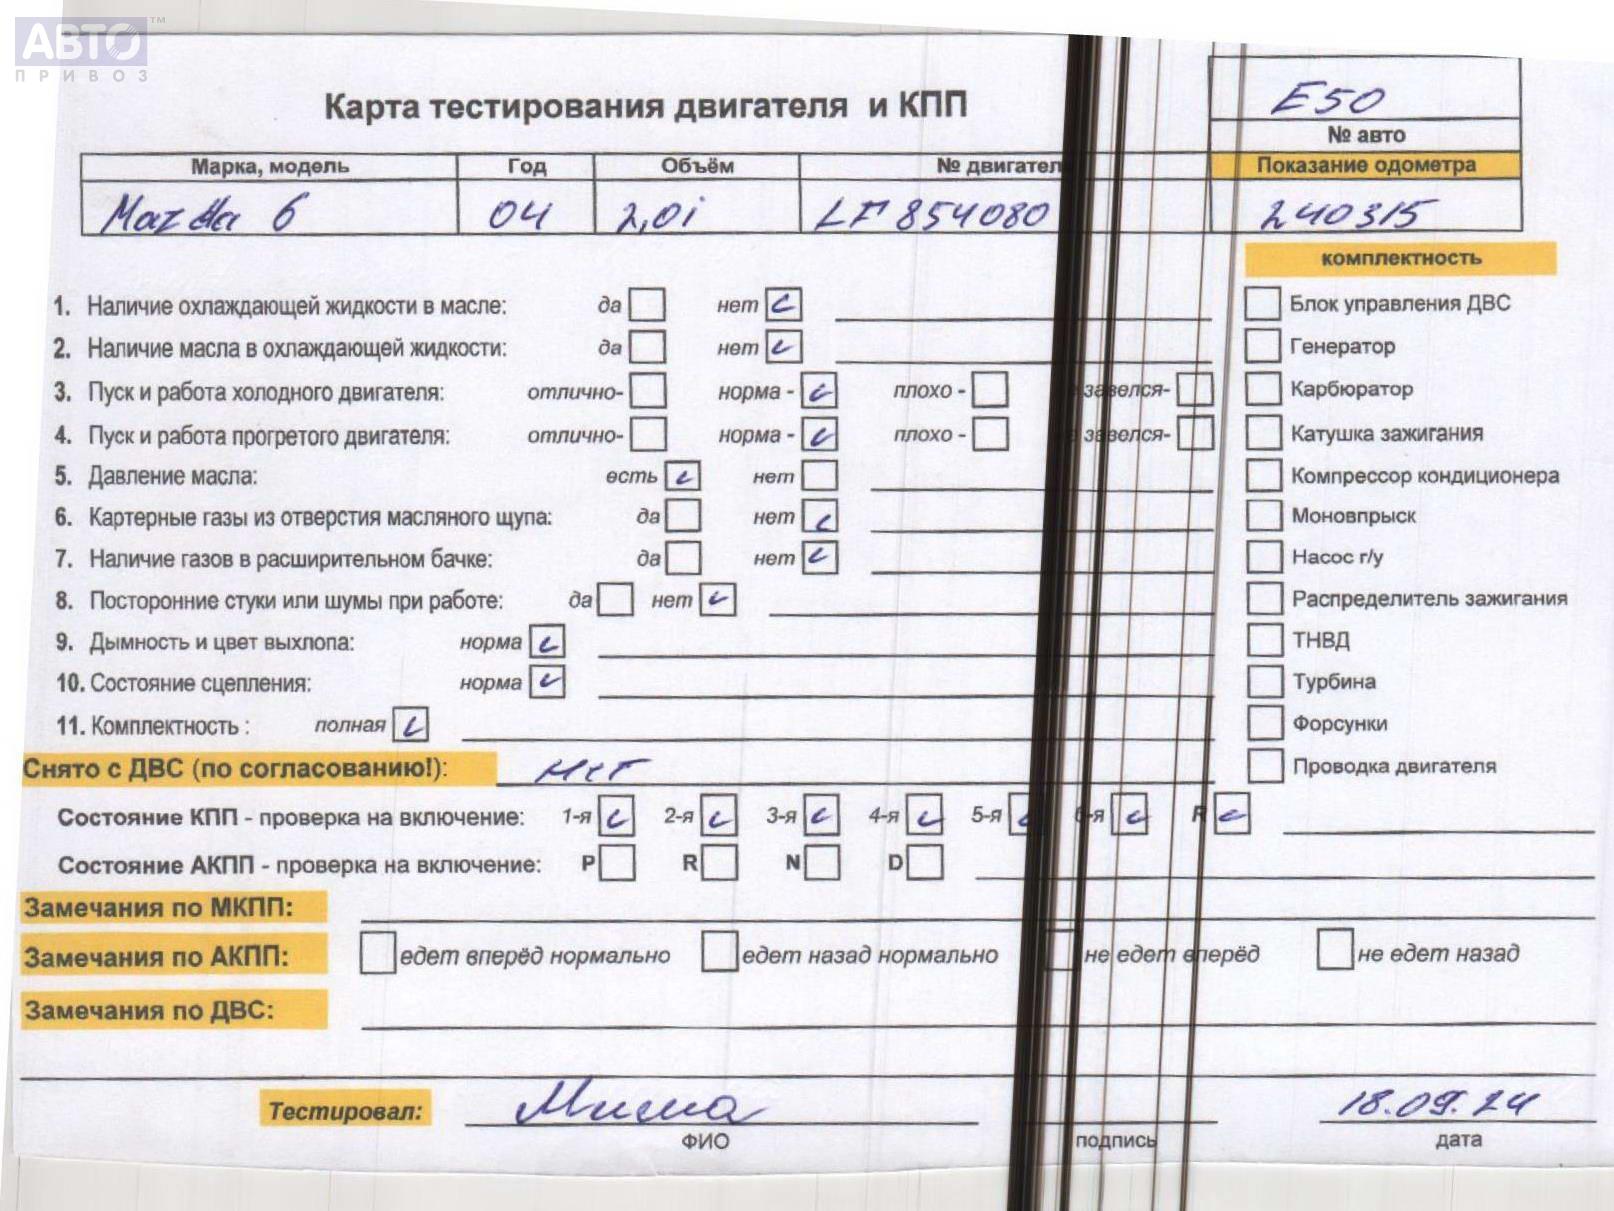 АВТО™
ПРИВОЗ
Карта тестирования двигателя и КПП
E50
№ авто
Марка, модель Год Объём № двигател Показание одометра
Mazda 6 04 2,0i LF 854080 240315
комплектность
1. Наличие охлаждающей жидкости в масле: да нет
2. Наличие масла в охлаждающей жидкости: да нет
3. Пуск и работа холодного двигателя: отлично- норма - плохо - завелся-
4. Пуск и работа прогретого двигателя: отлично- норма - плохо - завелся-
5. Давление масла: есть нет
6. Картерные газы из отверстия масляного щупа: да нет
7. Наличие газов в расширительном бачке: да нет
8. Посторонние стуки или шумы при работе: да нет
9. Дымность и цвет выхлопа: норма
10. Состояние сцепления: норма
11. Комплектность : полная
Блок управления ДВС
Генератор
Карбюратор
Катушка зажигания
Компрессор кондиционера
Моновпрыск
Насос г/у
Распределитель зажигания
ТНВД
Турбина
Форсунки
Проводка двигателя
Снято с ДВС (по согласованию!): нет
Состояние КПП - проверка на включение: 1-я 2-я 3-я 4-я 5-я 6-я R
Состояние АКПП - проверка на включение: P R N D
Замечания по МКПП:
Замечания по АКПП: едет вперёд нормально едет назад нормально не едет вперёд не едет назад
Замечания по ДВС:
Тестировал: Миша 18.09.24
ФИО подпись дата